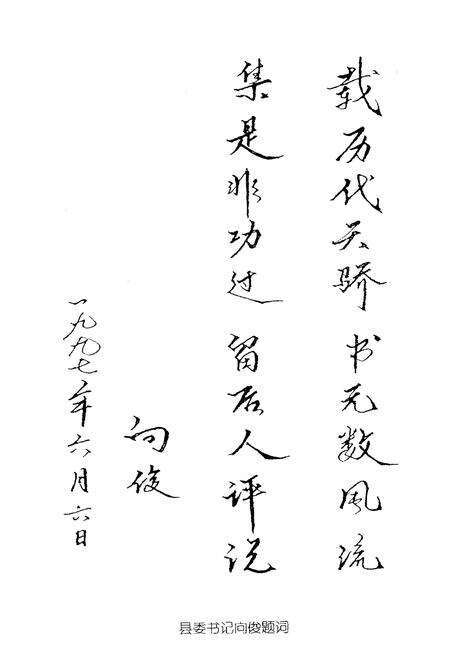 载历代天骄书无数风流
集是非功过留后人评说
向俊
一九九七年六月六日
县委书记向俊题词